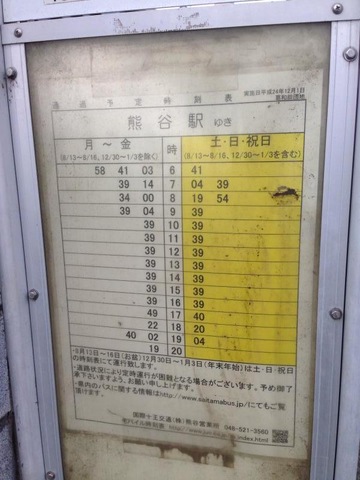 実施日平成24年12月1日
通過予定時刻表
熊谷駅 ゆき
月～金 時 土・日・祝日
(8/13～8/16、12/30～1/3を除く) (8/13～8/16、12/30～1/3を含む)
58 41 03 6 41
39 14 7 04 39
34 00 8 19 54
39 04 9 39
39 10 39
39 11 39
39 12 39
39 13 39
39 14 39
39 15 39
39 16 39
49 17 40
22 18
40 02 19 04
19 20
・8月13日～16日(お盆)12月30日～1月3日(年末年始)は土・日・祝日
の時刻表にて運行致します。
・道路状況により定時運行が困難となる場合がございます。予め御了
承下さいますよう、お願い申し上げます。
・県内のバスに関する情報はhttp://www.saitamabus.jp/にてもご覧
頂けます。
国際十王交通(株)熊谷営業所 048-521-3560
モバイル時刻表 index.html